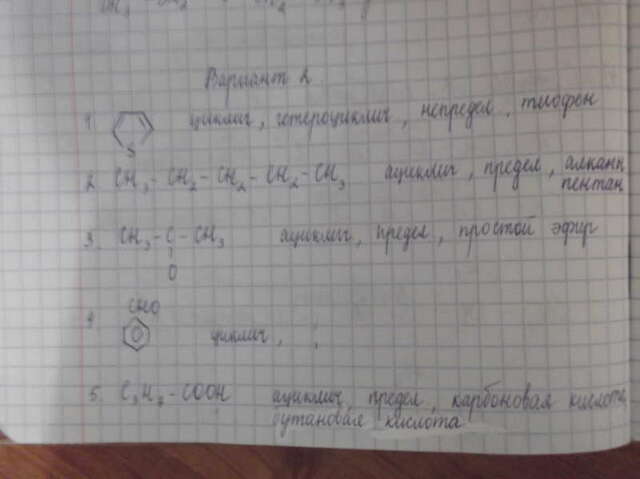 Вариант 2
1. S циклич, гетероциклич, непредел, тиофен
2. CH3 - CH2 - CH2 - CH2 - CH3 ациклич, предел, алканы
пентан
3. CH3 - C - CH3 ациклич, предел, простой эфир
O
CHO
4. циклич,
5. C3H7 - COOH ациклич, предел, карбоновая кислота,
бутановая кислота